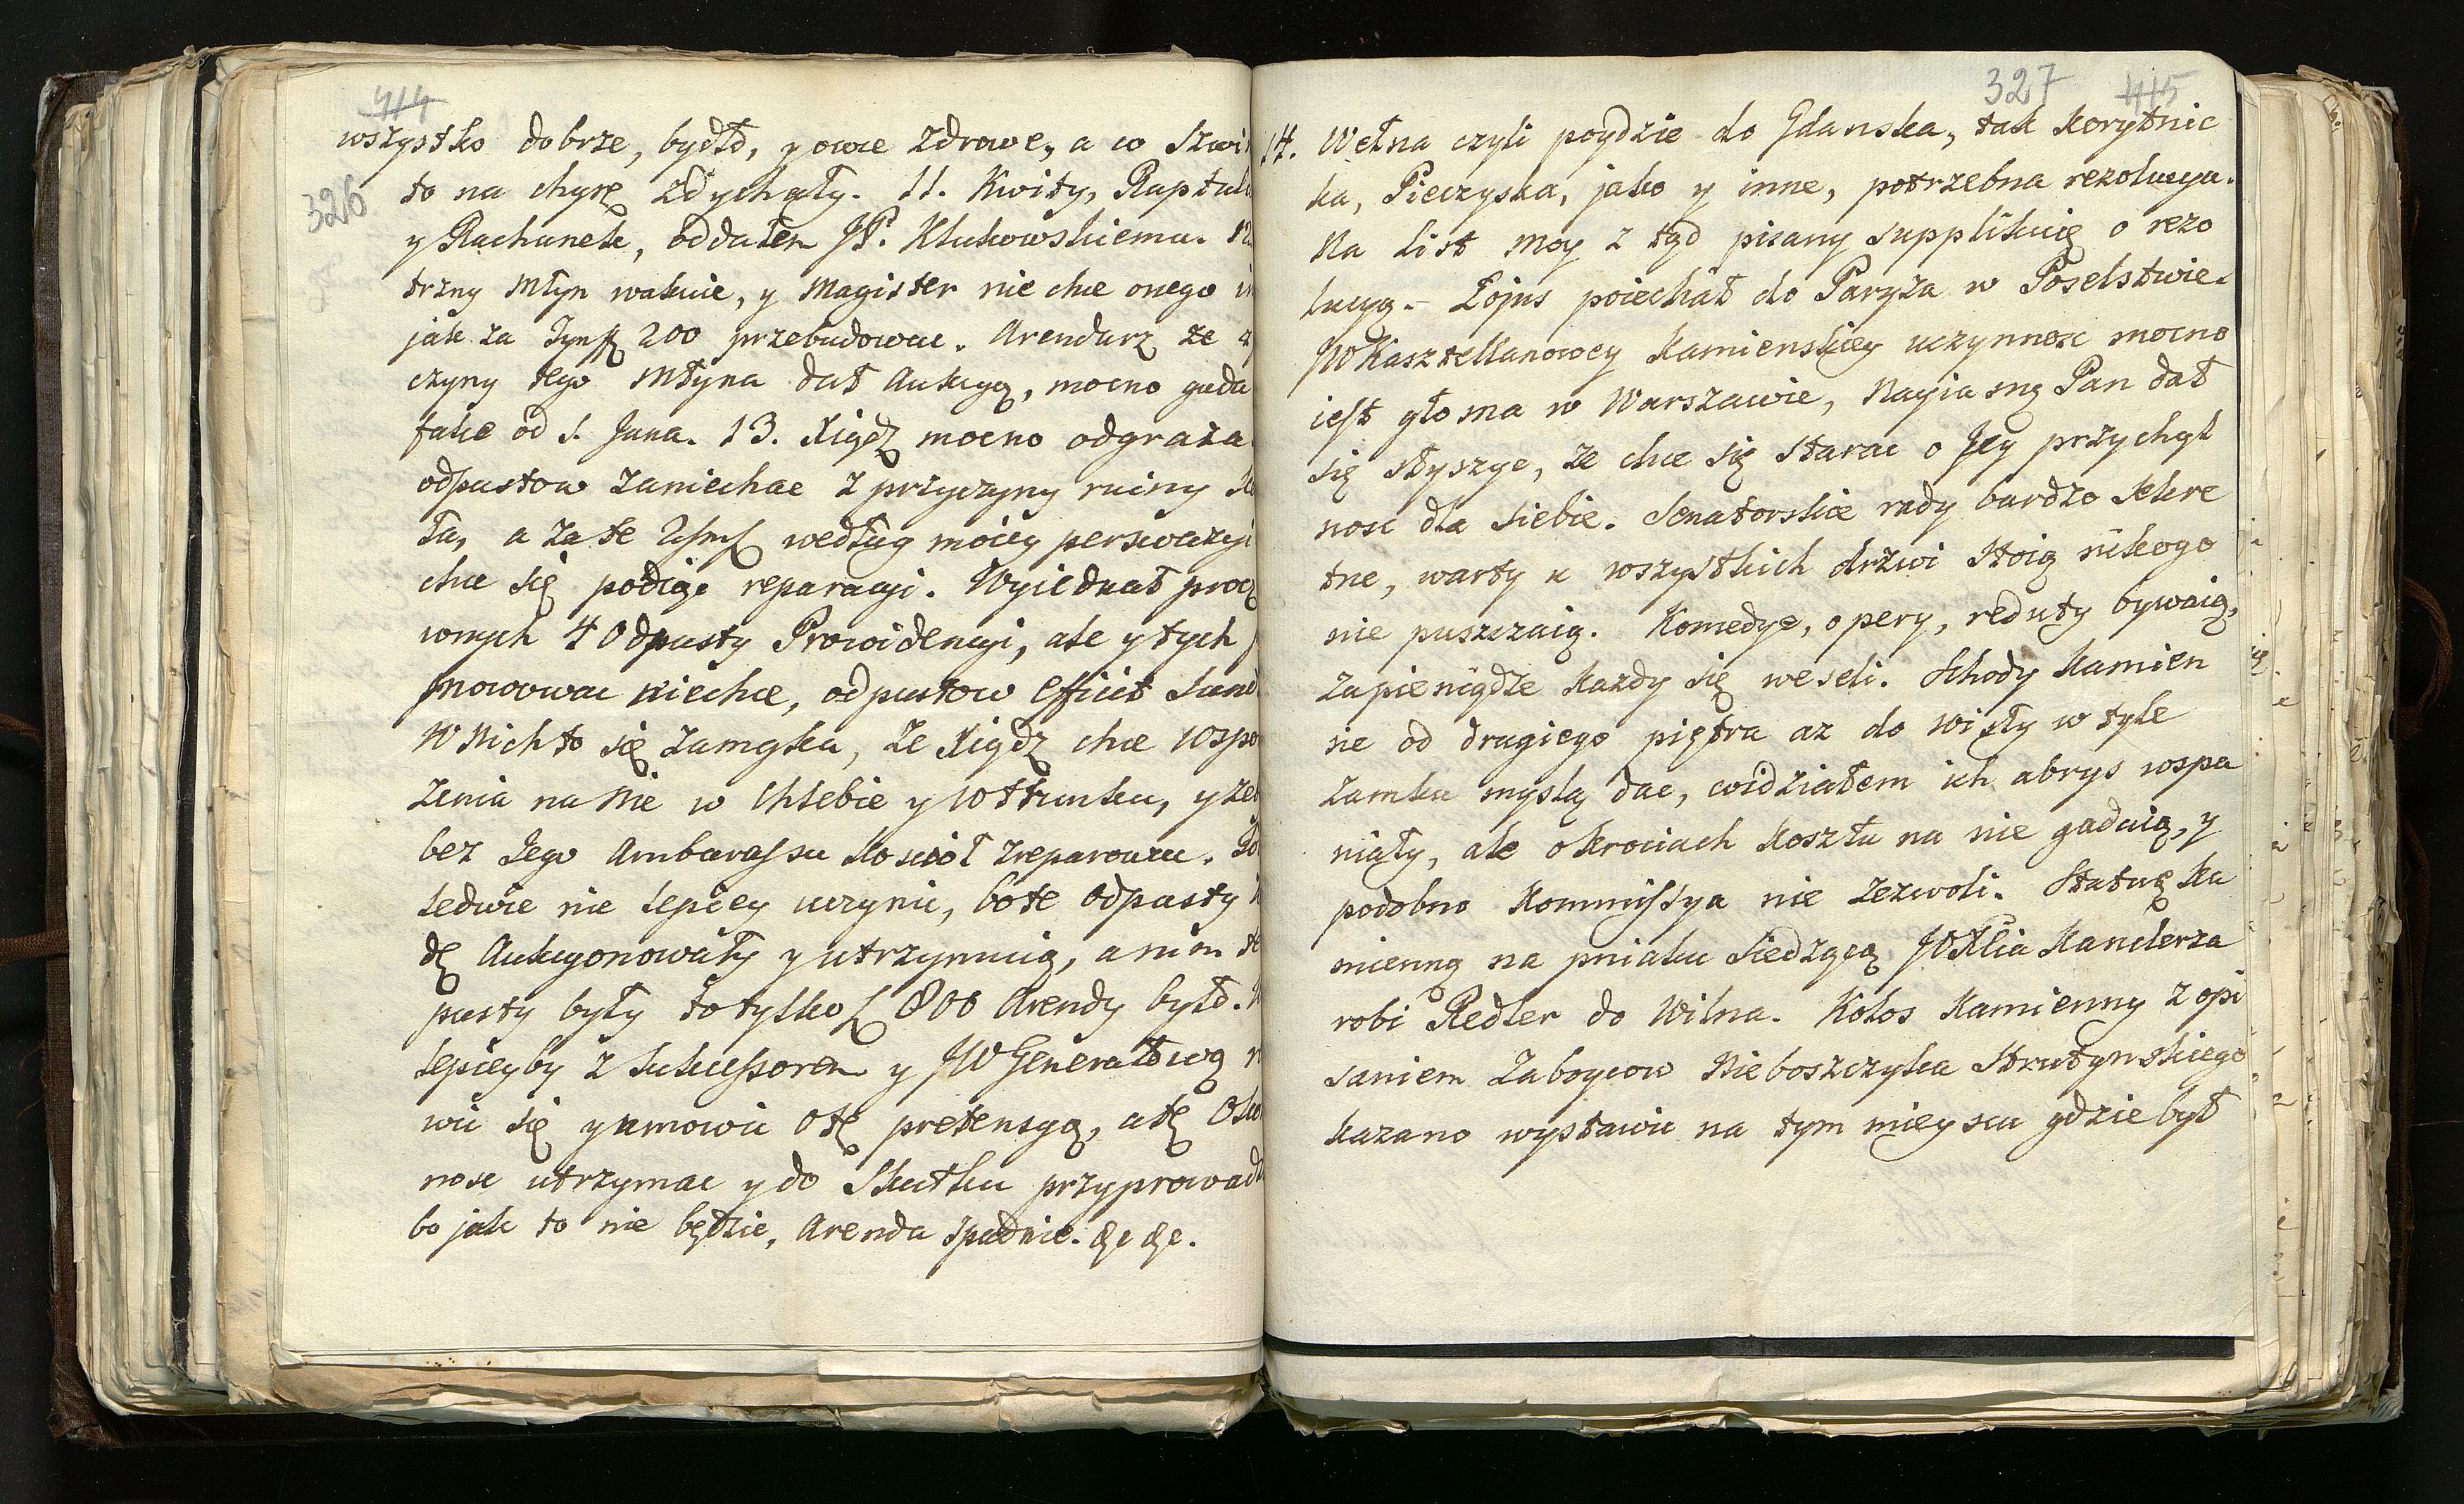 414
326
wszystko dobrze, bydło, y owce zdrowe, a w
to na chyrę zdychały. 11. Kwity,
y Rachunek, oddałem JP. Klukowskiemu.
trzny Młyn wakuie, y Magister nie chce onego
jak za Tynff 200 przebudowac. Arendarz ze
czyny tego Młyna dał Aukcyą, mocno gada
od S. Jana. 13. Xiądz mocno odgraża
odpustow zaniechac z przyczyny ruiny
ła, a za te według moiey perswazyi
chce się podiąc reparacyi. Wyiednał procz
wnych 4 Odpusty Prowidencyi, ale y tych
mowowac niechce, odpustow
W Nich to się zamyka, że Xiądz chce wspo
żenia na Nie w Chlebie y w trunku, y zeb
bez Jego Ambarassu Kosciół zreparowac.
ledwie nie lepiey uczynic, bo te Odpusty
dę Aukcyonowały y utrzymuią, a nim te
pusty były to tylko f 800 Arendy było.
lepiey by z Sukcessorem y JW Generałową
wic się y umowic o tę pretensyą, a tę
nosc utrzymac y do Skutku przyprowadz
bo jak to nie będzie, Arenda spadnie. &c &c.
327 415
14. Wełna czyli poydzie do Gdanska, tak Korytnic
ka, Pieczyska, jako y inne, potrzebna rezolucya.
Na List moy z tąd pisany supplikuię o rezo
lucyą. Łojus poiechał do Paryża w Poselstwie.
JW Kasztellanowey Kamienskiey uczynnosc mocno
iest głosna w Warszawie, Nayiasny Pan dał
się słyszyc, że chce się starac o Jey przychyl
nosc dla siebie. Senatorskie rady bardzo sekre
tne, warty u wszystkich drzwi stoią nikogo
nie puszczaią. Komedye, opery, reduty bywaią,
za pieniądze kazdy się weseli. Schody kamien
ne od drugiego piętra az do wisły w tyle
zamku myslą dac, widziałem ich abrys wspa
niały, ale o krociach kosztu na nie gadaią, y
podobno Kommissya nie zezwoli. Statuę ka
mienną na pniaku siedzącą JW Xcia Kanclerza
robi Redler do Wilna. Kolos Kamienny z opi
saniem Zaboycow Nieboszczyka Strutynskiego
kazano wystawic na tym mieyscu gdzie był